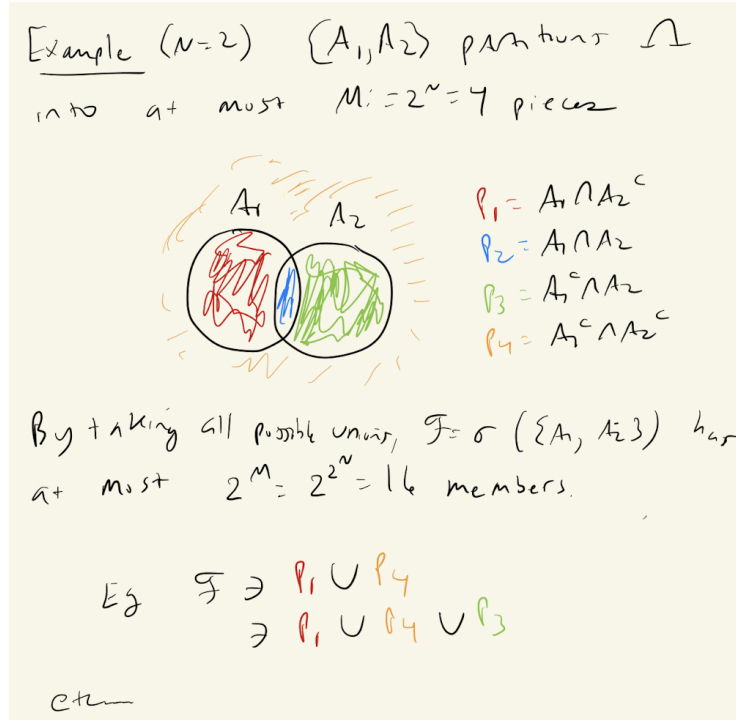 Example (N=2) {A₁,A₂} partitions Ω
into at most M:=2^N=4 pieces
A₁ A₂
P₁= A₁∩A₂ᶜ
P₂= A₁∩A₂
P₃= A₁ᶜ∩A₂
P₄= A₁ᶜ∩A₂ᶜ
By taking all possible unions, ℱ=σ({A₁, A₂}) has
at most 2^M=2^{2^N}=16 members.
Eg ℱ ∋ P₁ ∪ P₄
∋ P₁ ∪ P₄ ∪ P₃